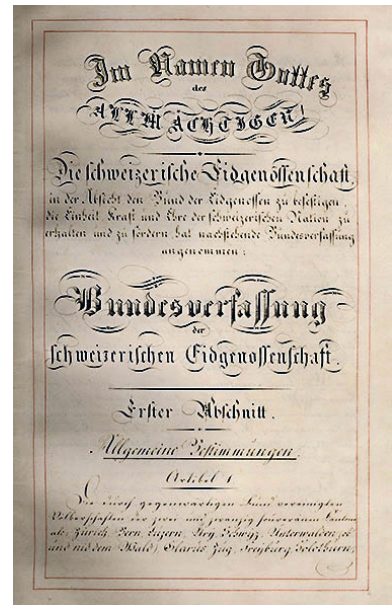 Im Namen Gottes
des
ALLMÄCHTIGEN!
Die schweizerische Eidgenossenschaft,
in der Absicht den Bund der Eidgenossen zu befestigen,
die Einheit Kraft und Ehre der schweizerischen Nation zu
erhalten und zu fördern hat nachstehende Bundesverfassung
angenommen:
Bundesverfassung
der
schweizerischen Eidgenossenschaft.
Erster Abschnitt.
Allgemeine Bestimmungen.
Artikel 1
Die durch gegenwärtigen Bund vereinigten
Völkerschaften der zwei und zwanzig souveränen Kantone
als: Zürich Bern, Luzern, Ury, Schwyz, Unterwalden, ob
und nid dem Wald, Glarus Zug, Freyburg Solothurn,